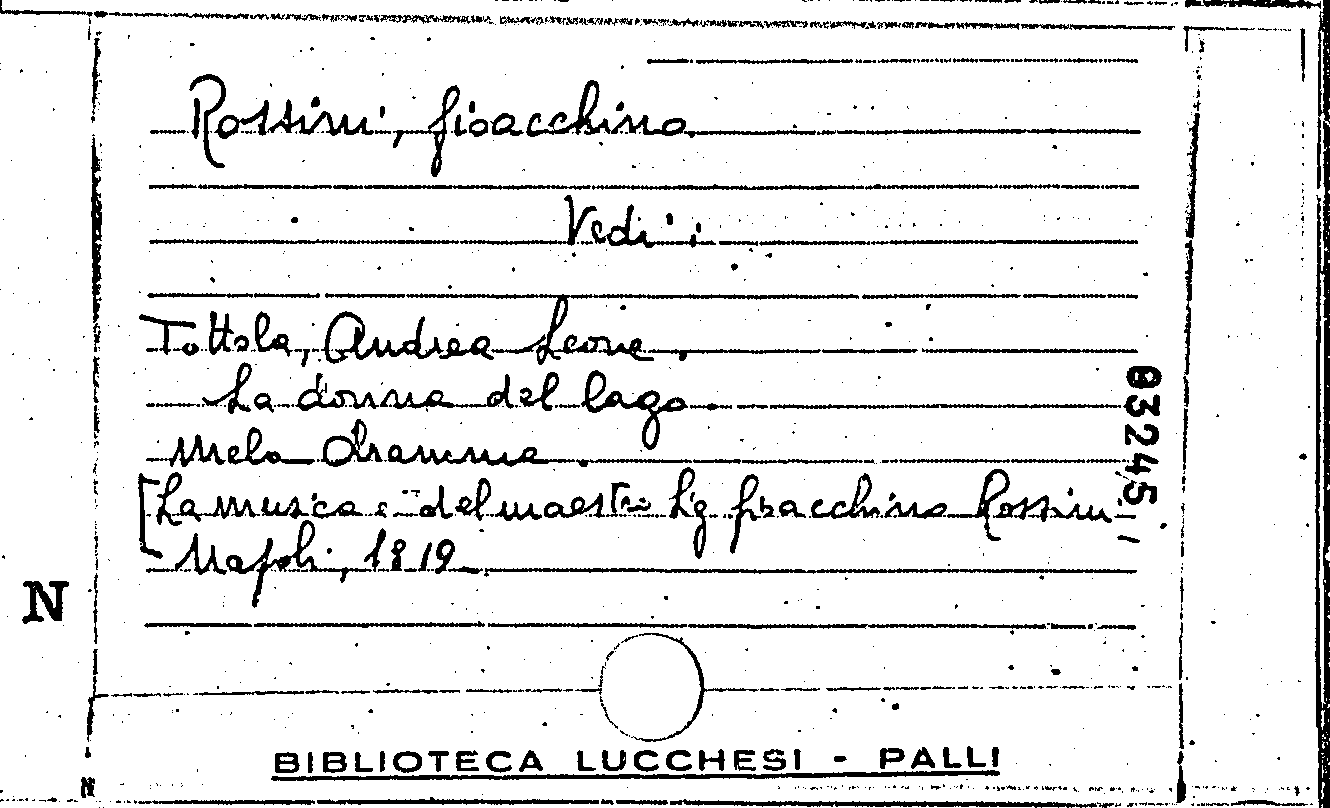 Rossini, Gioacchino.
Vedi:
Tottola, Andrea Leone.
La donna del lago.
Melo Dramma.
[La musica è del maestro Sig Gioacchino Rossini
Napoli, 1819.
03245
N
BIBLIOTECA LUCCHESI - PALLI
N